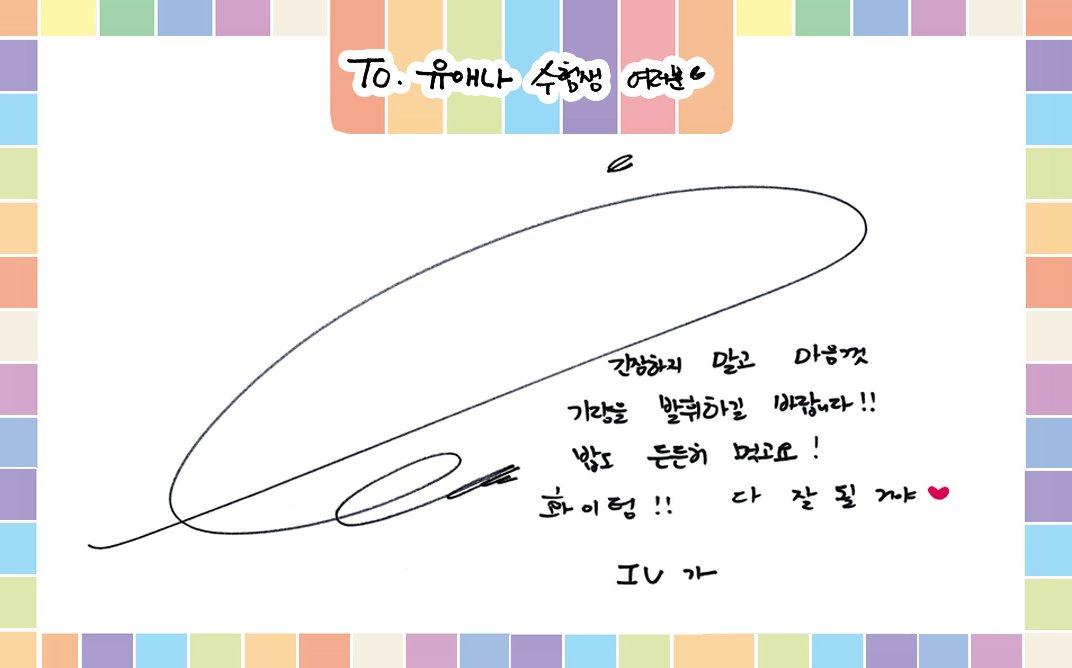 To. 유애나 수험생 여러분
긴장하지 말고 마음껏
기량을 발휘하길 바랍니다!!
밥도 든든히 먹고요!
화이텅!! 다 잘 될 거야
IU 가